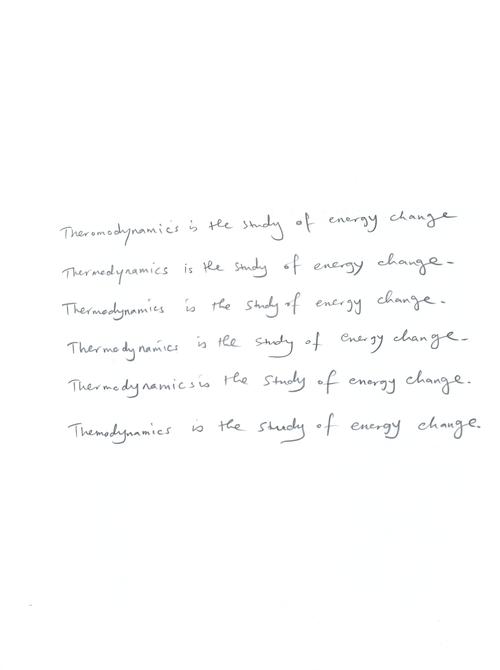 Theromodynamics is the study of energy change
Thermodynamics is the study of energy change.
Thermodynamics is the study of energy change.
Thermodynamics is the study of energy change.
Thermodynamics is the study of energy change.
Themodynamics is the study of energy change.